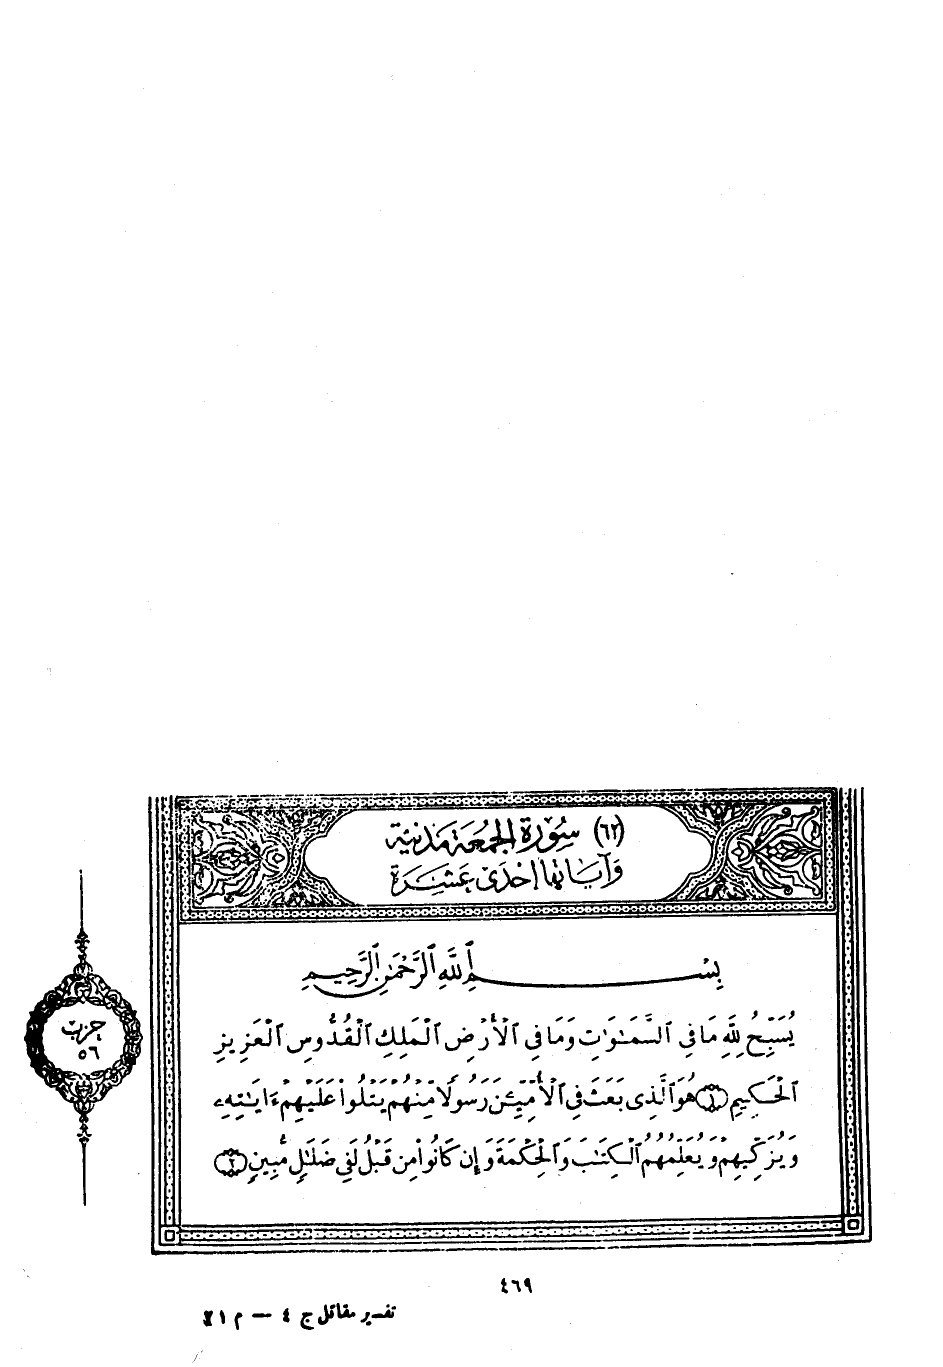 (٦٢) سُورَة الجُمُعَة مَدَنِيَّة
وَآيَاتهَا إحْدَى عَشَرَة
بِسْمِ ٱللَّهِ ٱلرَّحْمَٰنِ ٱلرَّحِيمِ
يُسَبِّحُ لِلَّهِ مَا فِى ٱلسَّمَٰوَٰتِ وَمَا فِى ٱلْأَرْضِ ٱلْمَلِكِ ٱلْقُدُّوسِ ٱلْعَزِيزِ
ٱلْحَكِيمِ ١ هُوَ ٱلَّذِى بَعَثَ فِى ٱلْأُمِّيِّـۧنَ رَسُولًا مِّنْهُمْ يَتْلُوا۟ عَلَيْهِمْ ءَايَٰتِهِۦ
وَيُزَكِّيهِمْ وَيُعَلِّمُهُمُ ٱلْكِتَٰبَ وَٱلْحِكْمَةَ وَإِن كَانُوا۟ مِن قَبْلُ لَفِى ضَلَٰلٍ مُّبِينٍ ٢
حزب
٥٦
٤٦٩
تفسير مقاتل ج ٤ — م